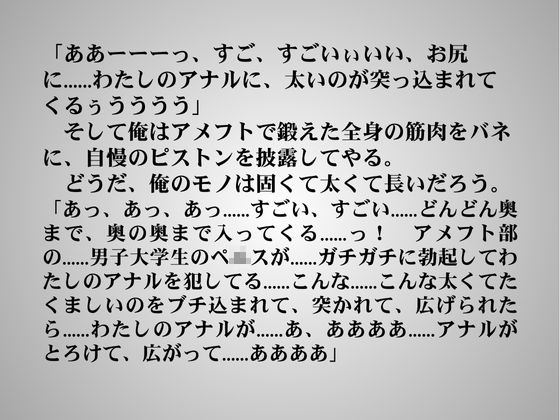 「ああーーーっ、すご、すごいぃいい、お尻
に……わたしのアナルに、太いのが突っ込まれて
くるぅうううう」
　そして俺はアメフトで鍛えた全身の筋肉をバネ
に、自慢のピストンを披露してやる。
　どうだ、俺のモノは固くて太くて長いだろう。
「あっ、あっ、あっ……すごい、すごい……どんどん奥
まで、奥の奥まで入ってくる……っ！　アメフト部
の……男子大学生のペスが……ガチガチに勃起してわ
たしのアナルを犯してる……こんな……こんな太くてた
くましいのをブチ込まれて、突かれて、広げられた
ら……わたしのアナルが……あ、ああああ……アナルが
とろけて、広がって……ああああ」